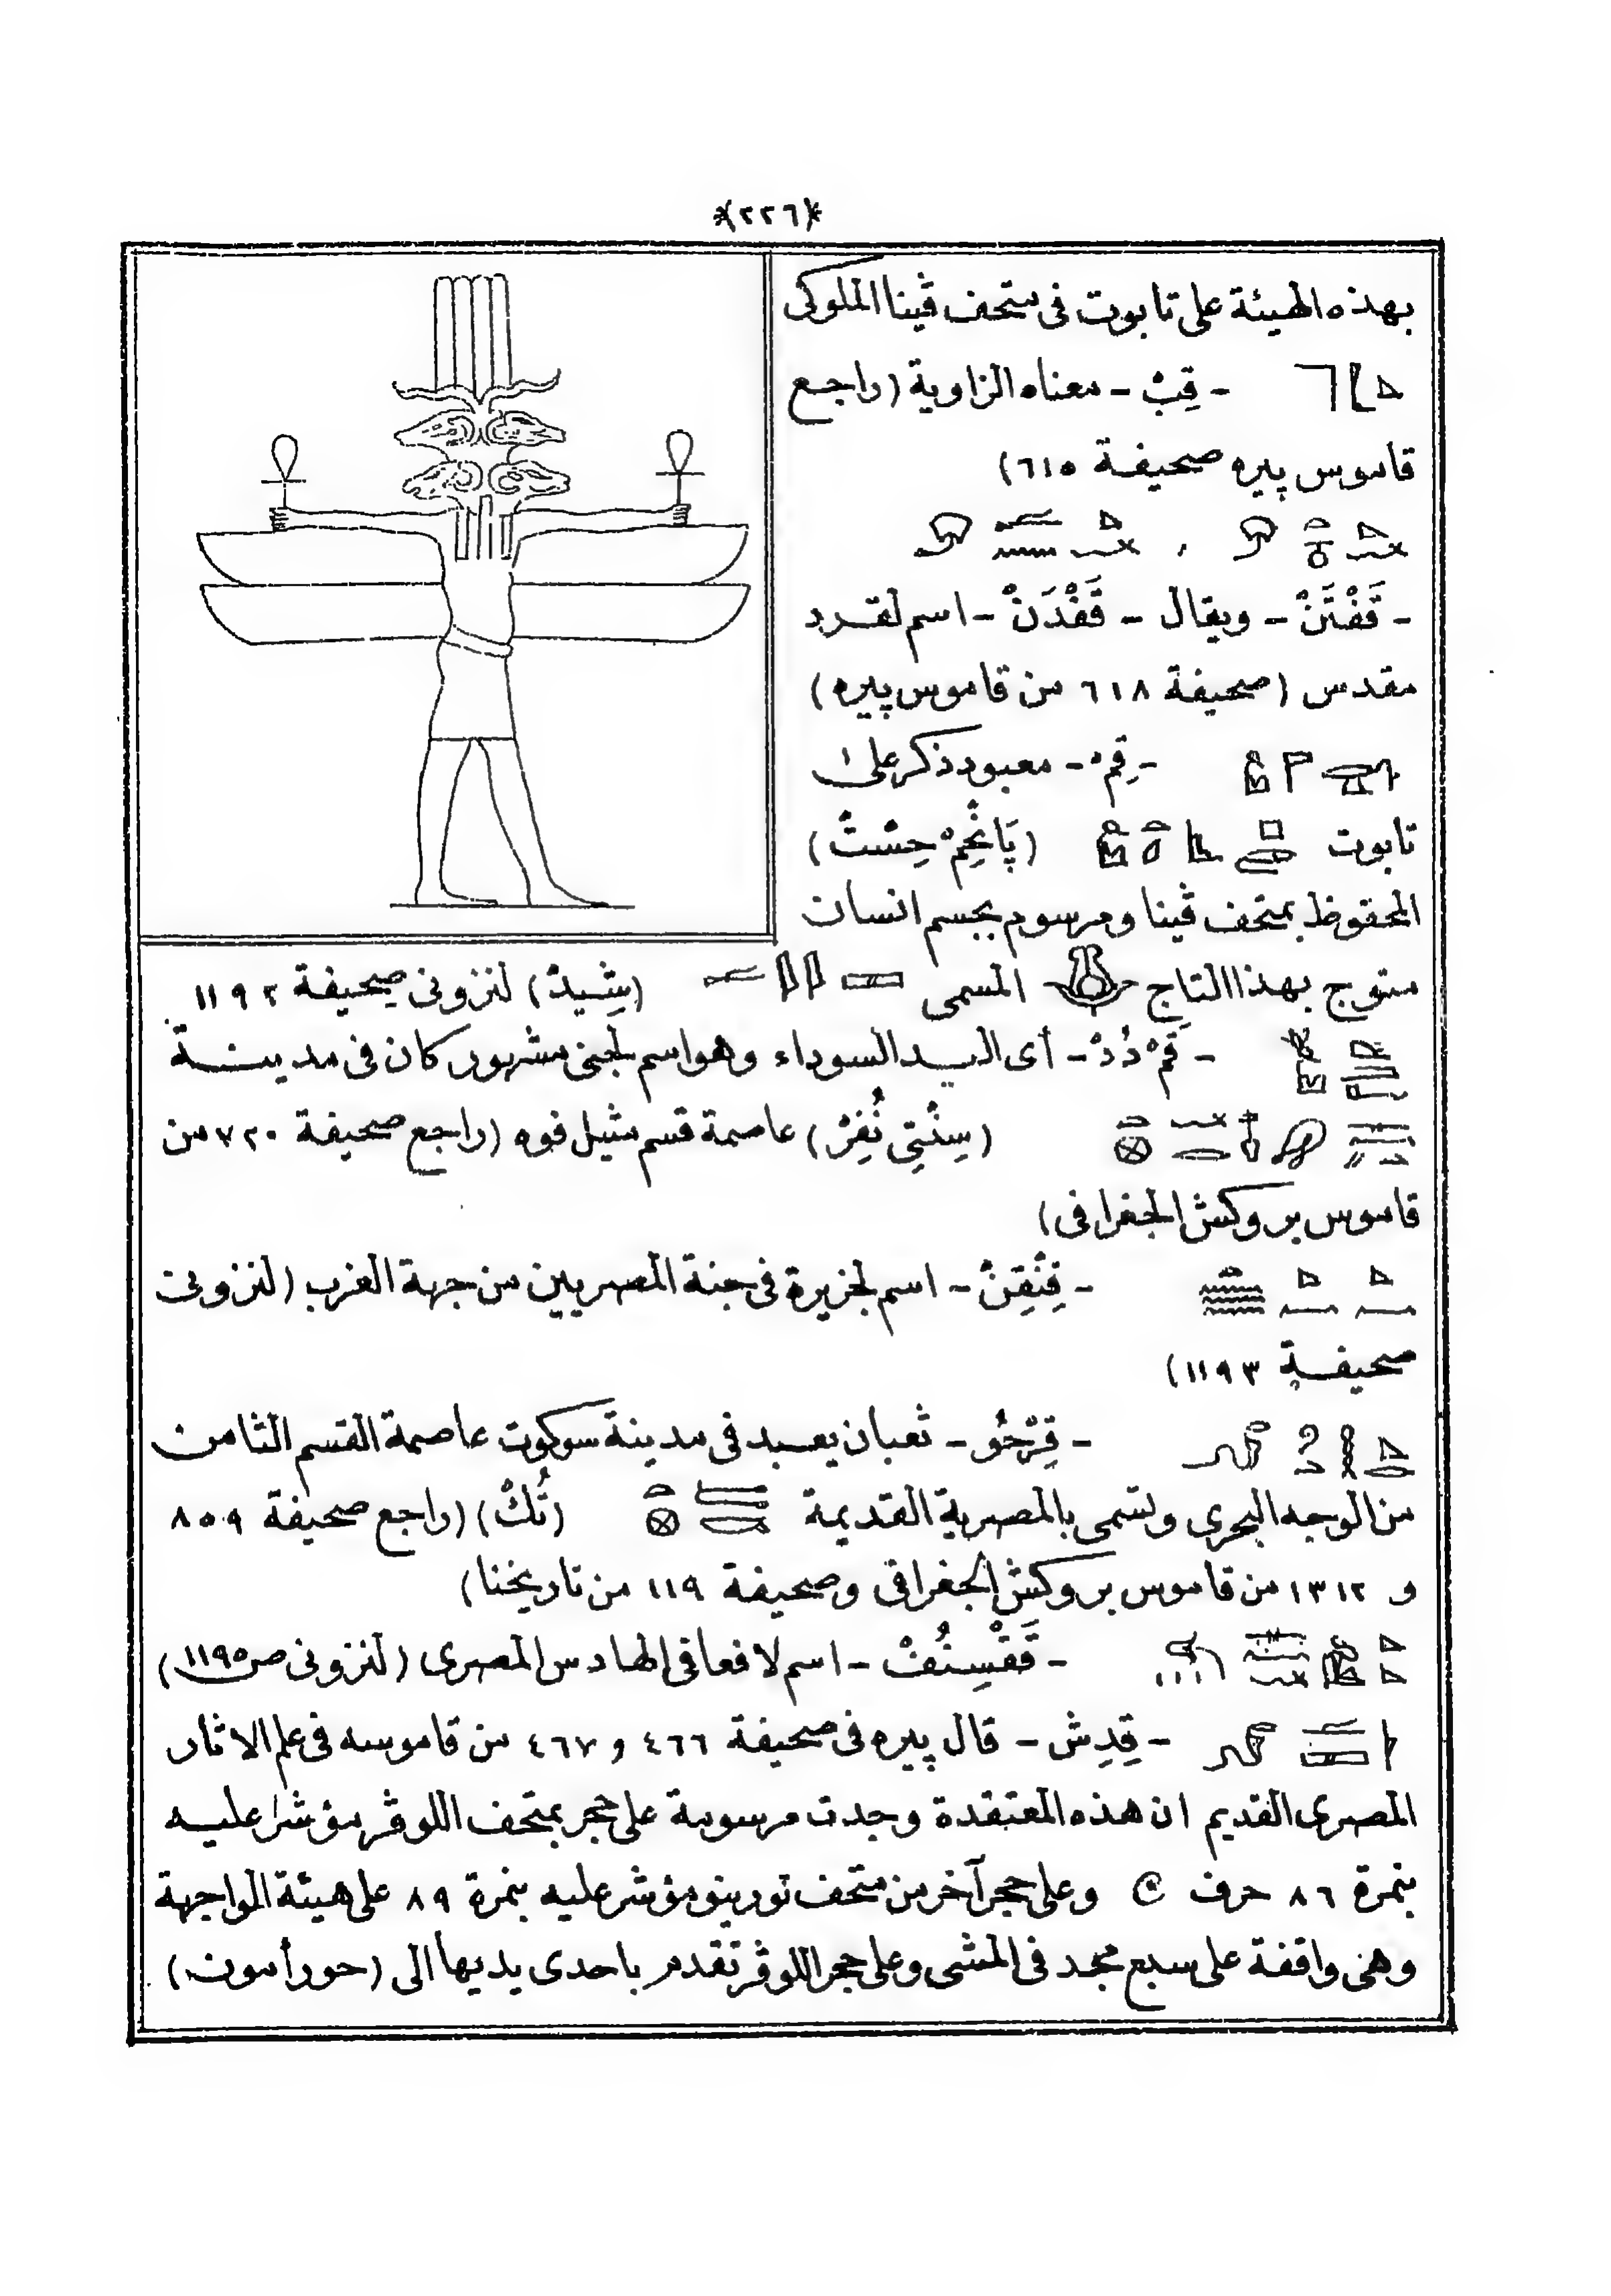 *(٢٢٦)*
بهذه الهيئة على تابوت فى متحف ڤينا الملوكى
- قِبْ - معناه الزاوية (راجع
قاموس پيره صحيفة ٦١٥)
- قَفْتَنْ - ويقال - قَفْدَنْ - اسم لقرد
مقدس (صحيفة ٦١٨ من قاموس پيره)
- قِمْ - معبود ذكر على
تابوت (پَانْخِمْ حِسْتْ)
المحفوظ بمتحف ڤينا ومرسوم بجسم انسان
متوج بهذا التاج المسمى (شِيدْ) لنزونى صحيفة ١١٩٢
- قَمْ دُدْ - أى اليد السوداء وهو اسم لجنى مشهور كان فى مدينة
(سِنْتِى نُفِرْ) عاصمة قسم مثيل فوه (راجع صحيفة ٧٢٠ من
قاموس بروكش الجغرافى)
- قِنْقِنْ - اسم لجزيرة فى جنة المصريين من جهة الغرب (لنزونى
صحيفة ١١٩٣)
- قِرْحُو - ثعبان يعبد فى مدينة سوكوت عاصمة القسم الثامن
من الوجه البحرى وتسمى بالمصرية القديمة (تُكْ) (راجع صحيفة ٨٥٩
و ١٣١٢ من قاموس بروكش الجغرافى وصحيفة ١١٩ من تاريخنا)
- قَقْسِنُفْ - اسم لافعا فى الهادس المصرى (لنزونى ص ١١٩٥)
- قِدِش - قال پيره فى صحيفة ٤٦٦ و ٤٦٧ من قاموسه فى علم الاثار
المصرى القديم ان هذه المعتقدة وجدت مرسومة على حجر بمتحف اللوڤر مؤشرا عليه
بنمرة ٨٦ حرف C وعلى حجر آخر من متحف تورينو مؤشر عليه بنمرة ٨٩ على هيئة المواجهة
وهى واقفة على سبع مجد فى المشى وعلى حجر اللوڤر تقدم باحدى يديها الى (حورأمون)